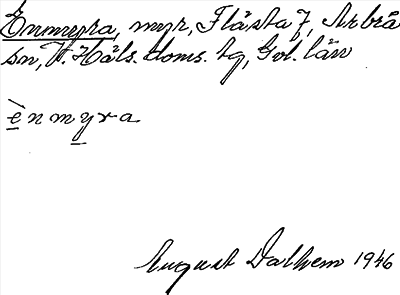 Enmyra, myr, Flästa f, Arbrå
sn, V. Häls. doms. tg, Gvl. län
ènmyra
August Dalhem 1946